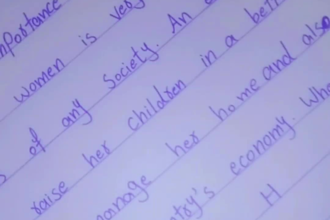 mportance
women is ver
of any society. An
raise her children in a bett
manage her home and also
try's economy. Whe
H